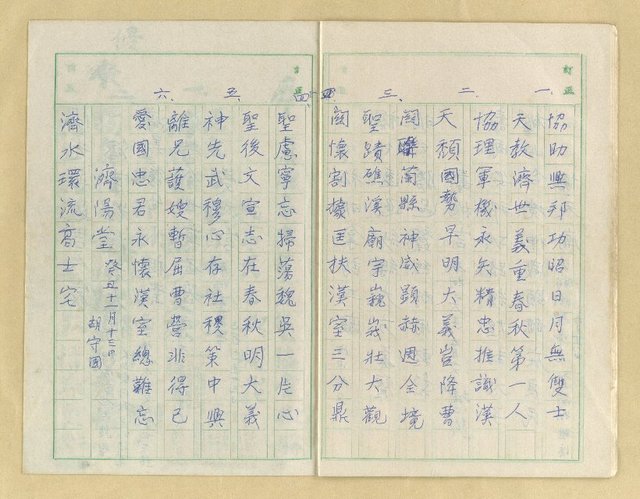 訂正
一、
協助興邦功昭日月無雙士
天教濟世義重春秋第一人
二、
協理軍機永矢精忠推識漢
天顏國勢早明大義豈降曹
三、
闔蘭縣神威顯赫週全境
聖蹟礁溪廟宇巍峩壯大觀
四、
關懷割據匡扶漢室三分鼎
聖慮寧忘掃蕩魏吳一片心
五、
聖後文宣志在春秋明大義
神先武穆心存社稷策中興
六、
離兄護嫂暫屈曹營非得已
愛國忠君永懷漢室總難忘
濟陽堂 癸丑十一月十三日 胡守國
濟水環流高士宅